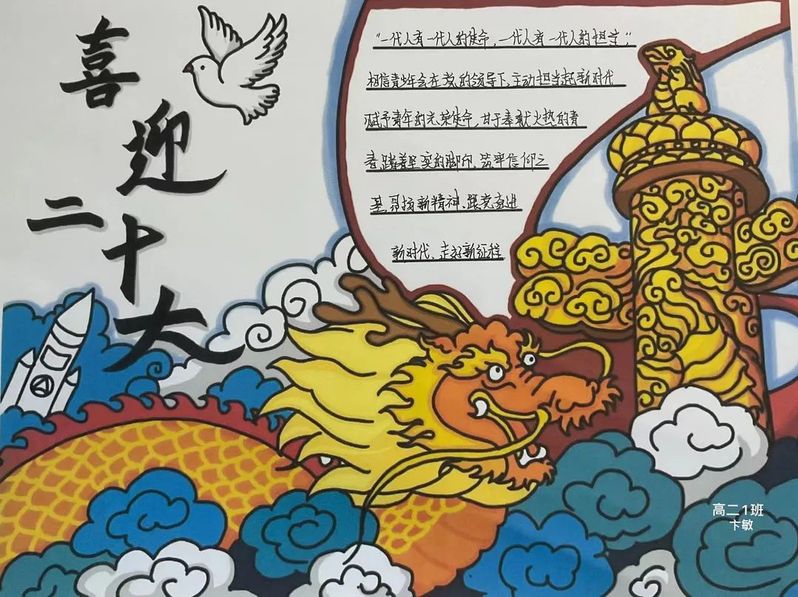 喜迎二十大
"一代人有一代人的使命，一代人有一代人的担当."
相信青少年会在党的领导下，主动担当起新时代
赋予青年的光荣使命，甘于奉献火热的青
春，踏着坚实的脚印，筑牢信仰之
基，昂扬新精神、跟党奋进
新时代、走好新征程
高二1班
卞敏